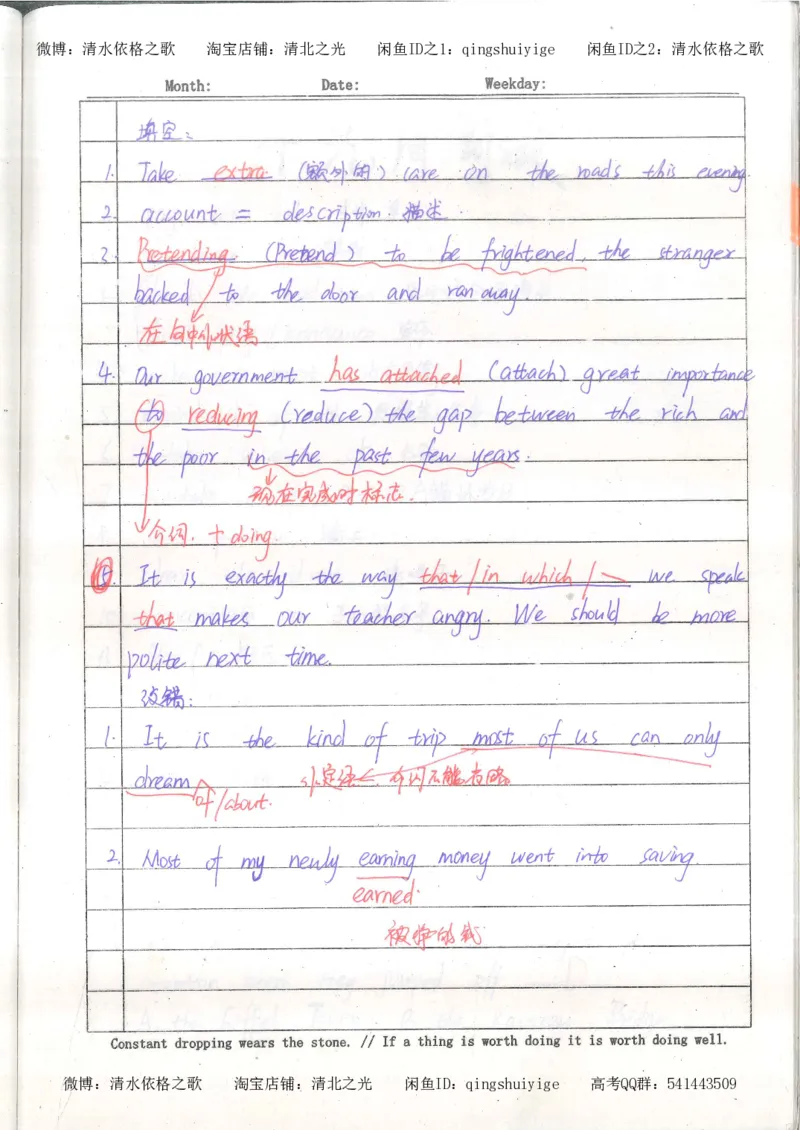 微博：清水依格之歌 淘宝店铺：清北之光 闲鱼ID之1：qingshuiyige 闲鱼ID之2：清水依格之歌
Month: Date: Weekday:
填空：
1. Take extra (额外的) care on the roads this evening.
2. account = description. 描述.
3. Pretending (Pretend) to be frightened, the stranger
backed to the door and ran away.
在句中作状语
4. Our government has attached (attach) great importance
to reducing (reduce) the gap between the rich and
the poor in the past few years.
现在完成时标志.
介词. + doing.
5. It is exactly the way that / in which / \ we speak
that makes our teacher angry. We should be more
polite next time.
改错:
1. It is the kind of trip most of us can only
dream 作定语 ← 介词不能省略。
of/about.
2. Most of my newly earning money went into saving.
earned.
被挣的钱
Constant dropping wears the stone. // If a thing is worth doing it is worth doing well.
微博：清水依格之歌 淘宝店铺：清北之光 闲鱼ID：qingshuiyige 高考QQ群：541443509